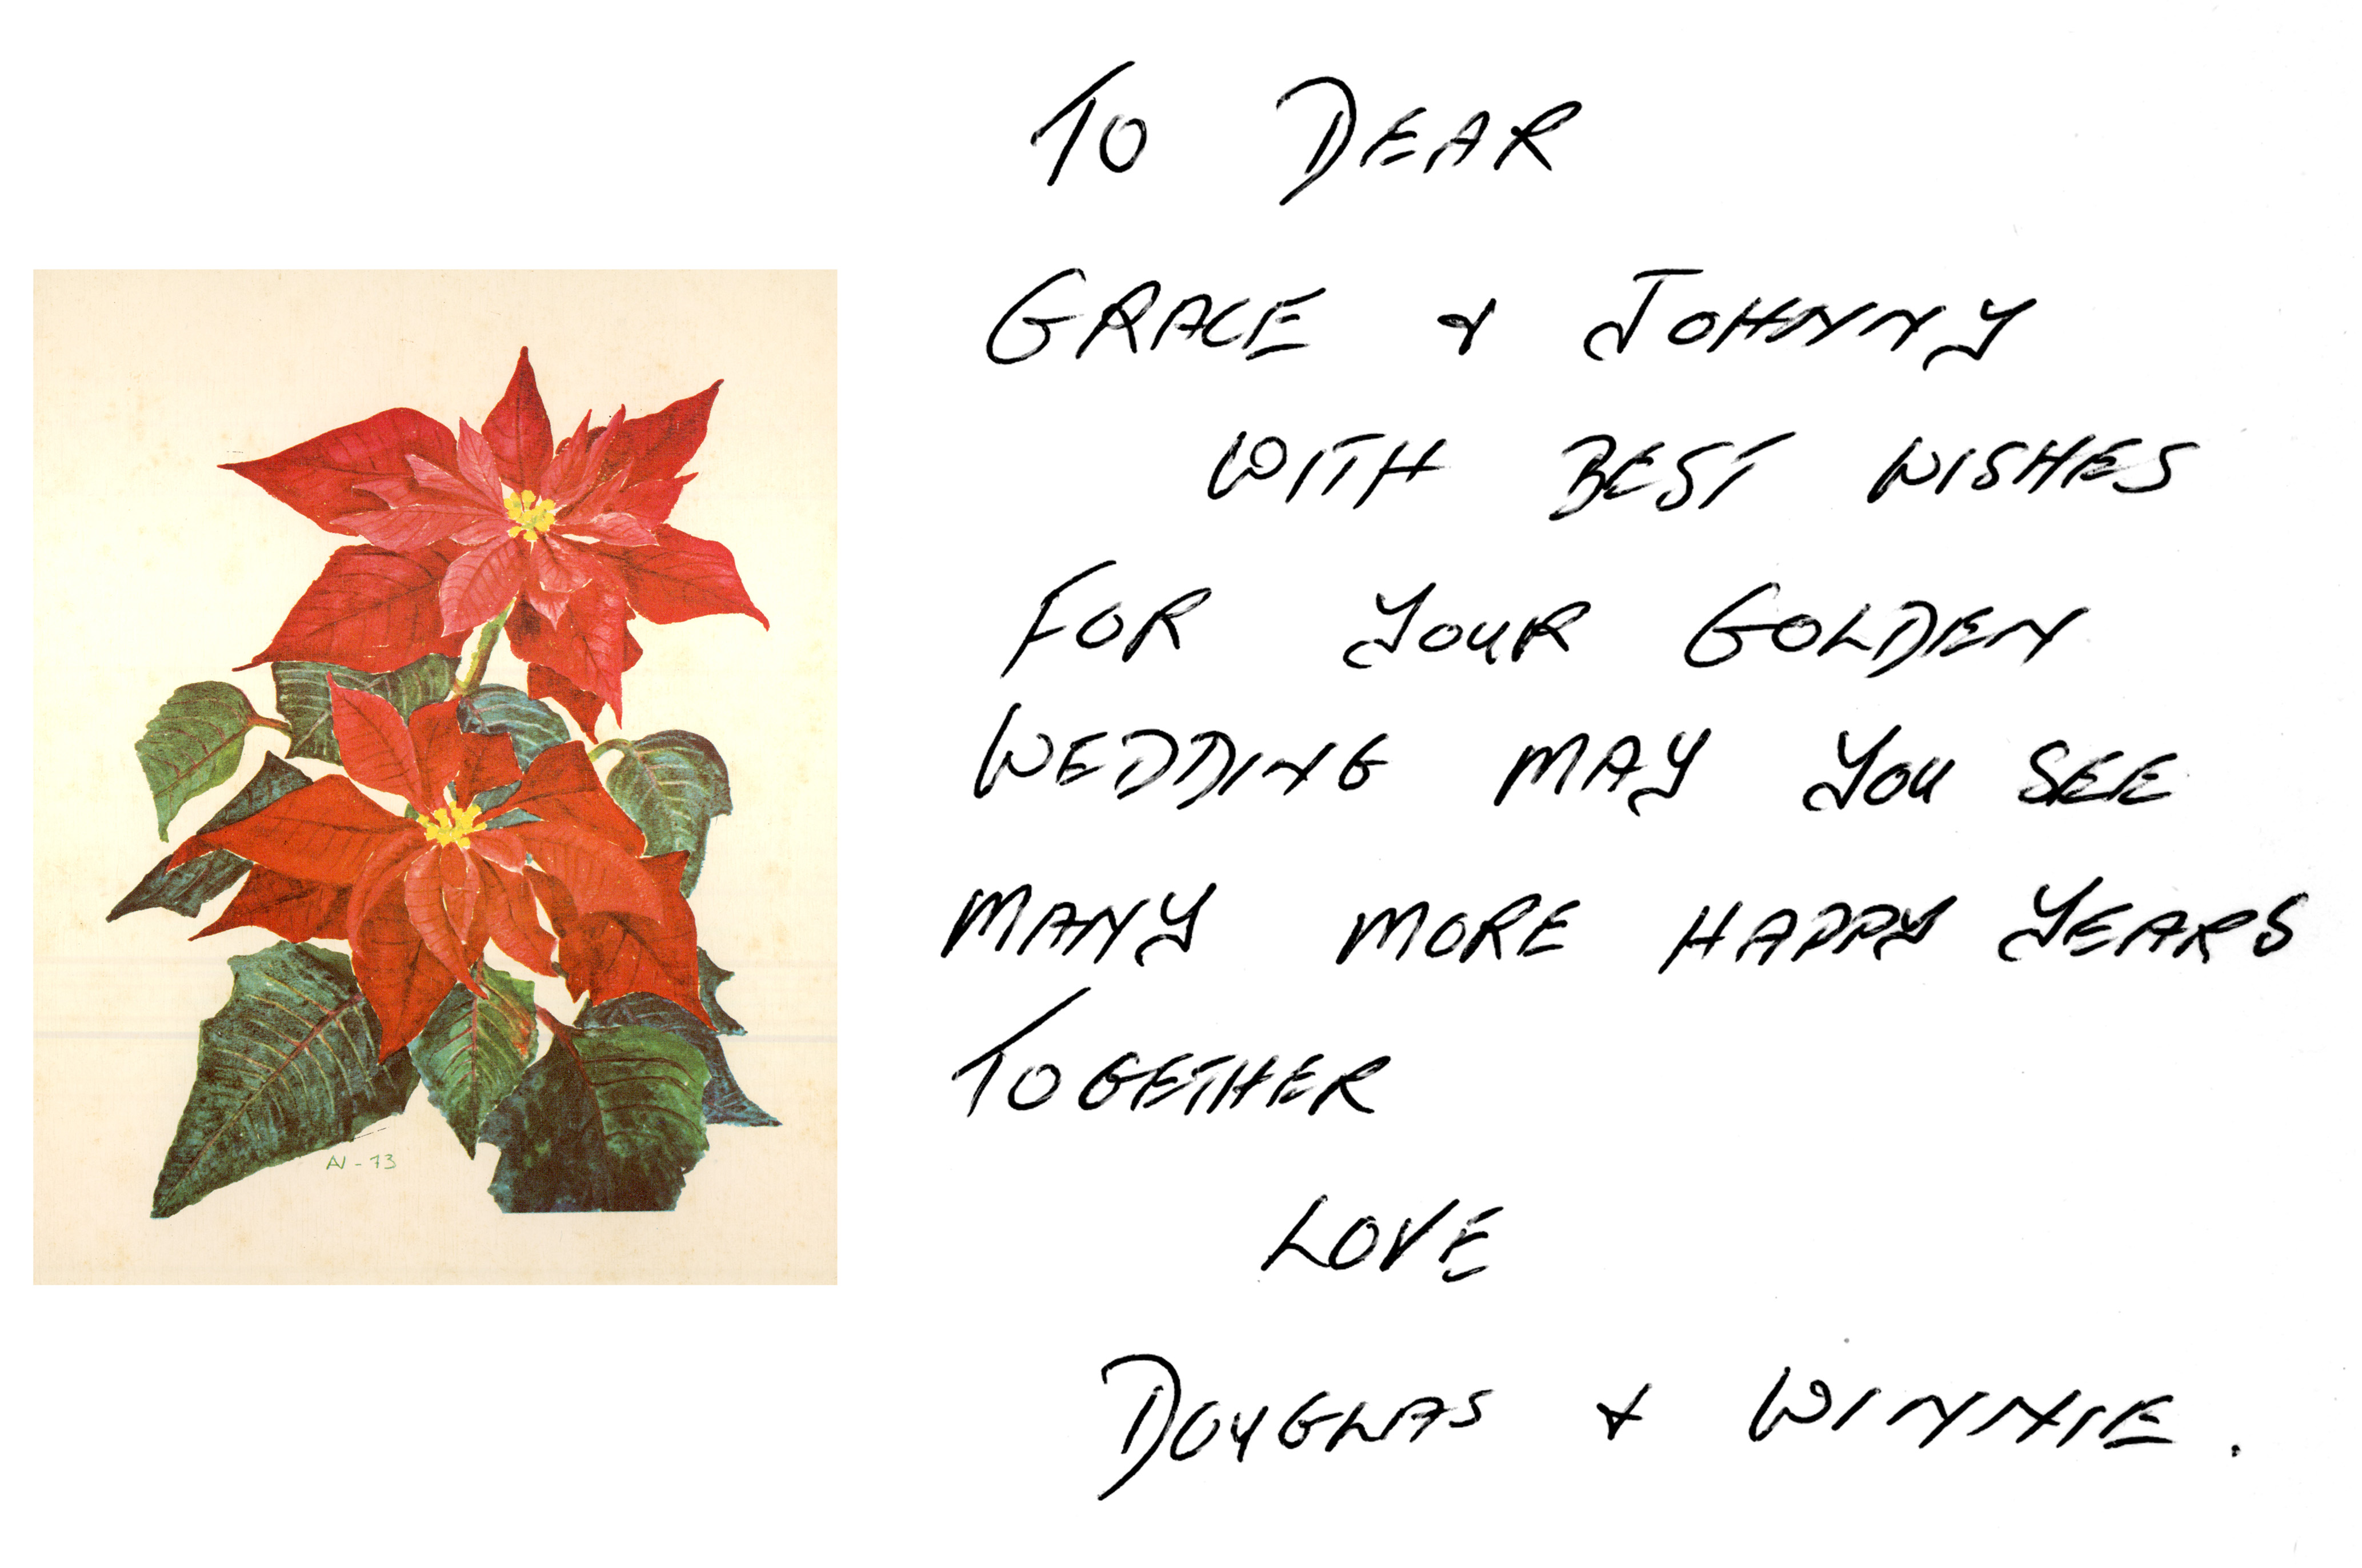 TO DEAR
GRACE & JOHNNY
WITH BEST WISHES
FOR YOUR GOLDEN
WEDDING MAY YOU SEE
MANY MORE HAPPY YEARS
TOGETHER
LOVE
DOUGLAS & WINNIE.